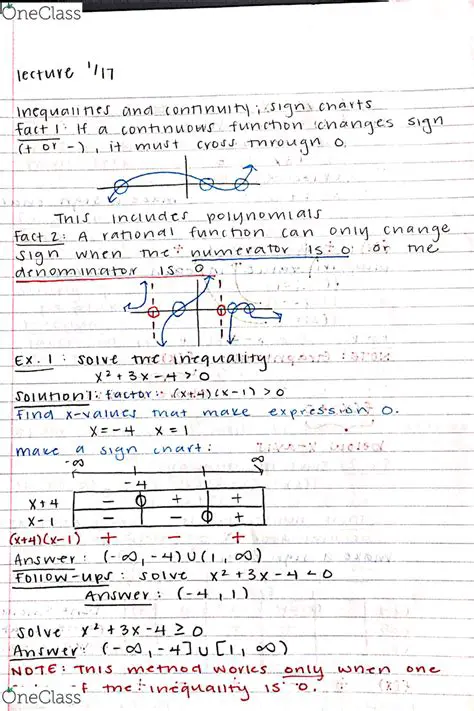 OneClass
lecture 1/17
Inequalities and continuity; sign charts
Fact 1: If a continuous function changes sign
(+ or -), it must cross through 0.
This includes polynomials
Fact 2: A rational function can only change
sign when the numerator is 0 or the
denominator is 0
Ex. 1: solve the inequality
x² + 3x - 4 > 0
Solution: factor: (x+4)(x-1) > 0
Find x-values that make expression 0.
x = -4 x = 1
make a sign chart:
-∞ ∞
-4 1
x+4 - 0 + +
x-1 - - 0 +
(x+4)(x-1) + - +
Answer: (-∞, -4) ∪ (1, ∞)
Follow-ups: solve x² + 3x - 4 < 0
Answer: (-4, 1)
solve x² + 3x - 4 ≥ 0
Answer: (-∞, -4] ∪ [1, ∞)
NOTE: This method works only when one
of the inequality is 0.
OneClass